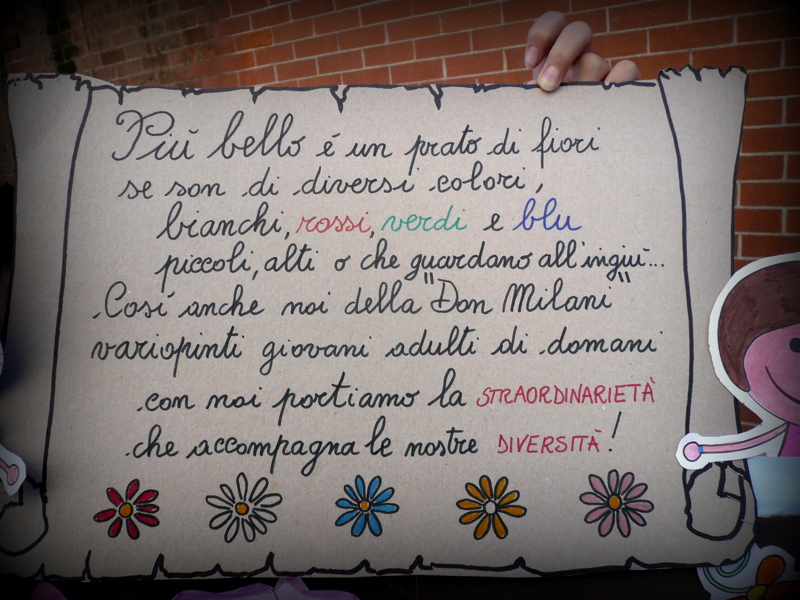 Più bello è un prato di fiori
se son di diversi colori,
bianchi, rossi, verdi e blu
piccoli, alti o che guardano all'ingiù...
Così anche noi della "Don Milani"
variopinti giovani adulti di domani
con noi portiamo la STRAORDINARIETÀ
che accompagna le nostre DIVERSITÀ!